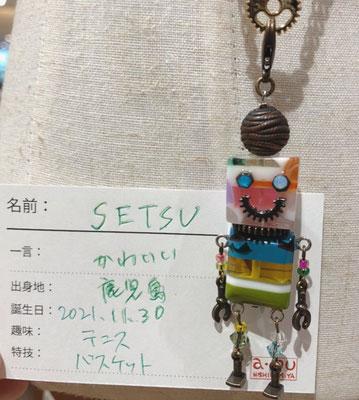 名前： SETSU
一言： かわいい
出身地： 鹿児島
誕生日： 2021.11.30
趣味： テニス
特技： バスケット